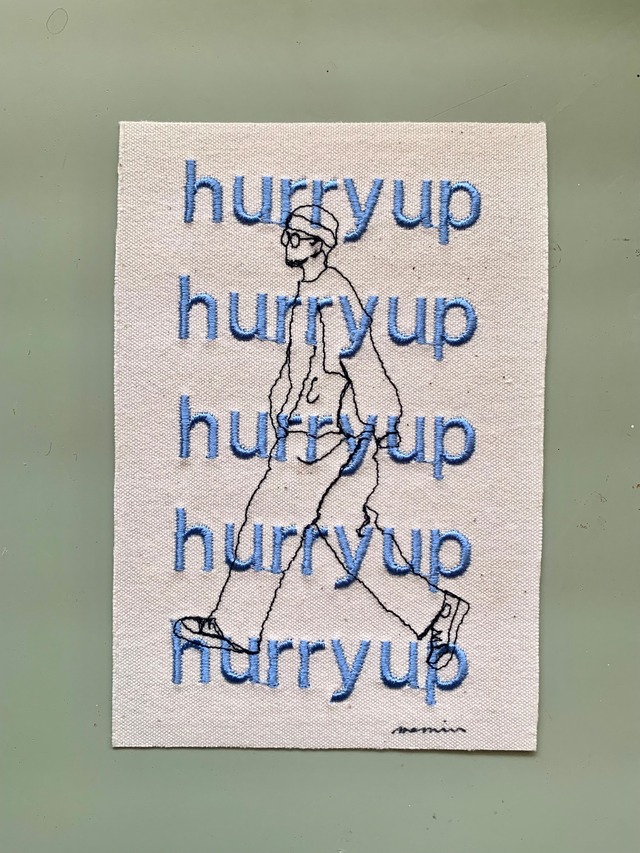 hurryup
hurryup
hurryup
hurryup
hurryup